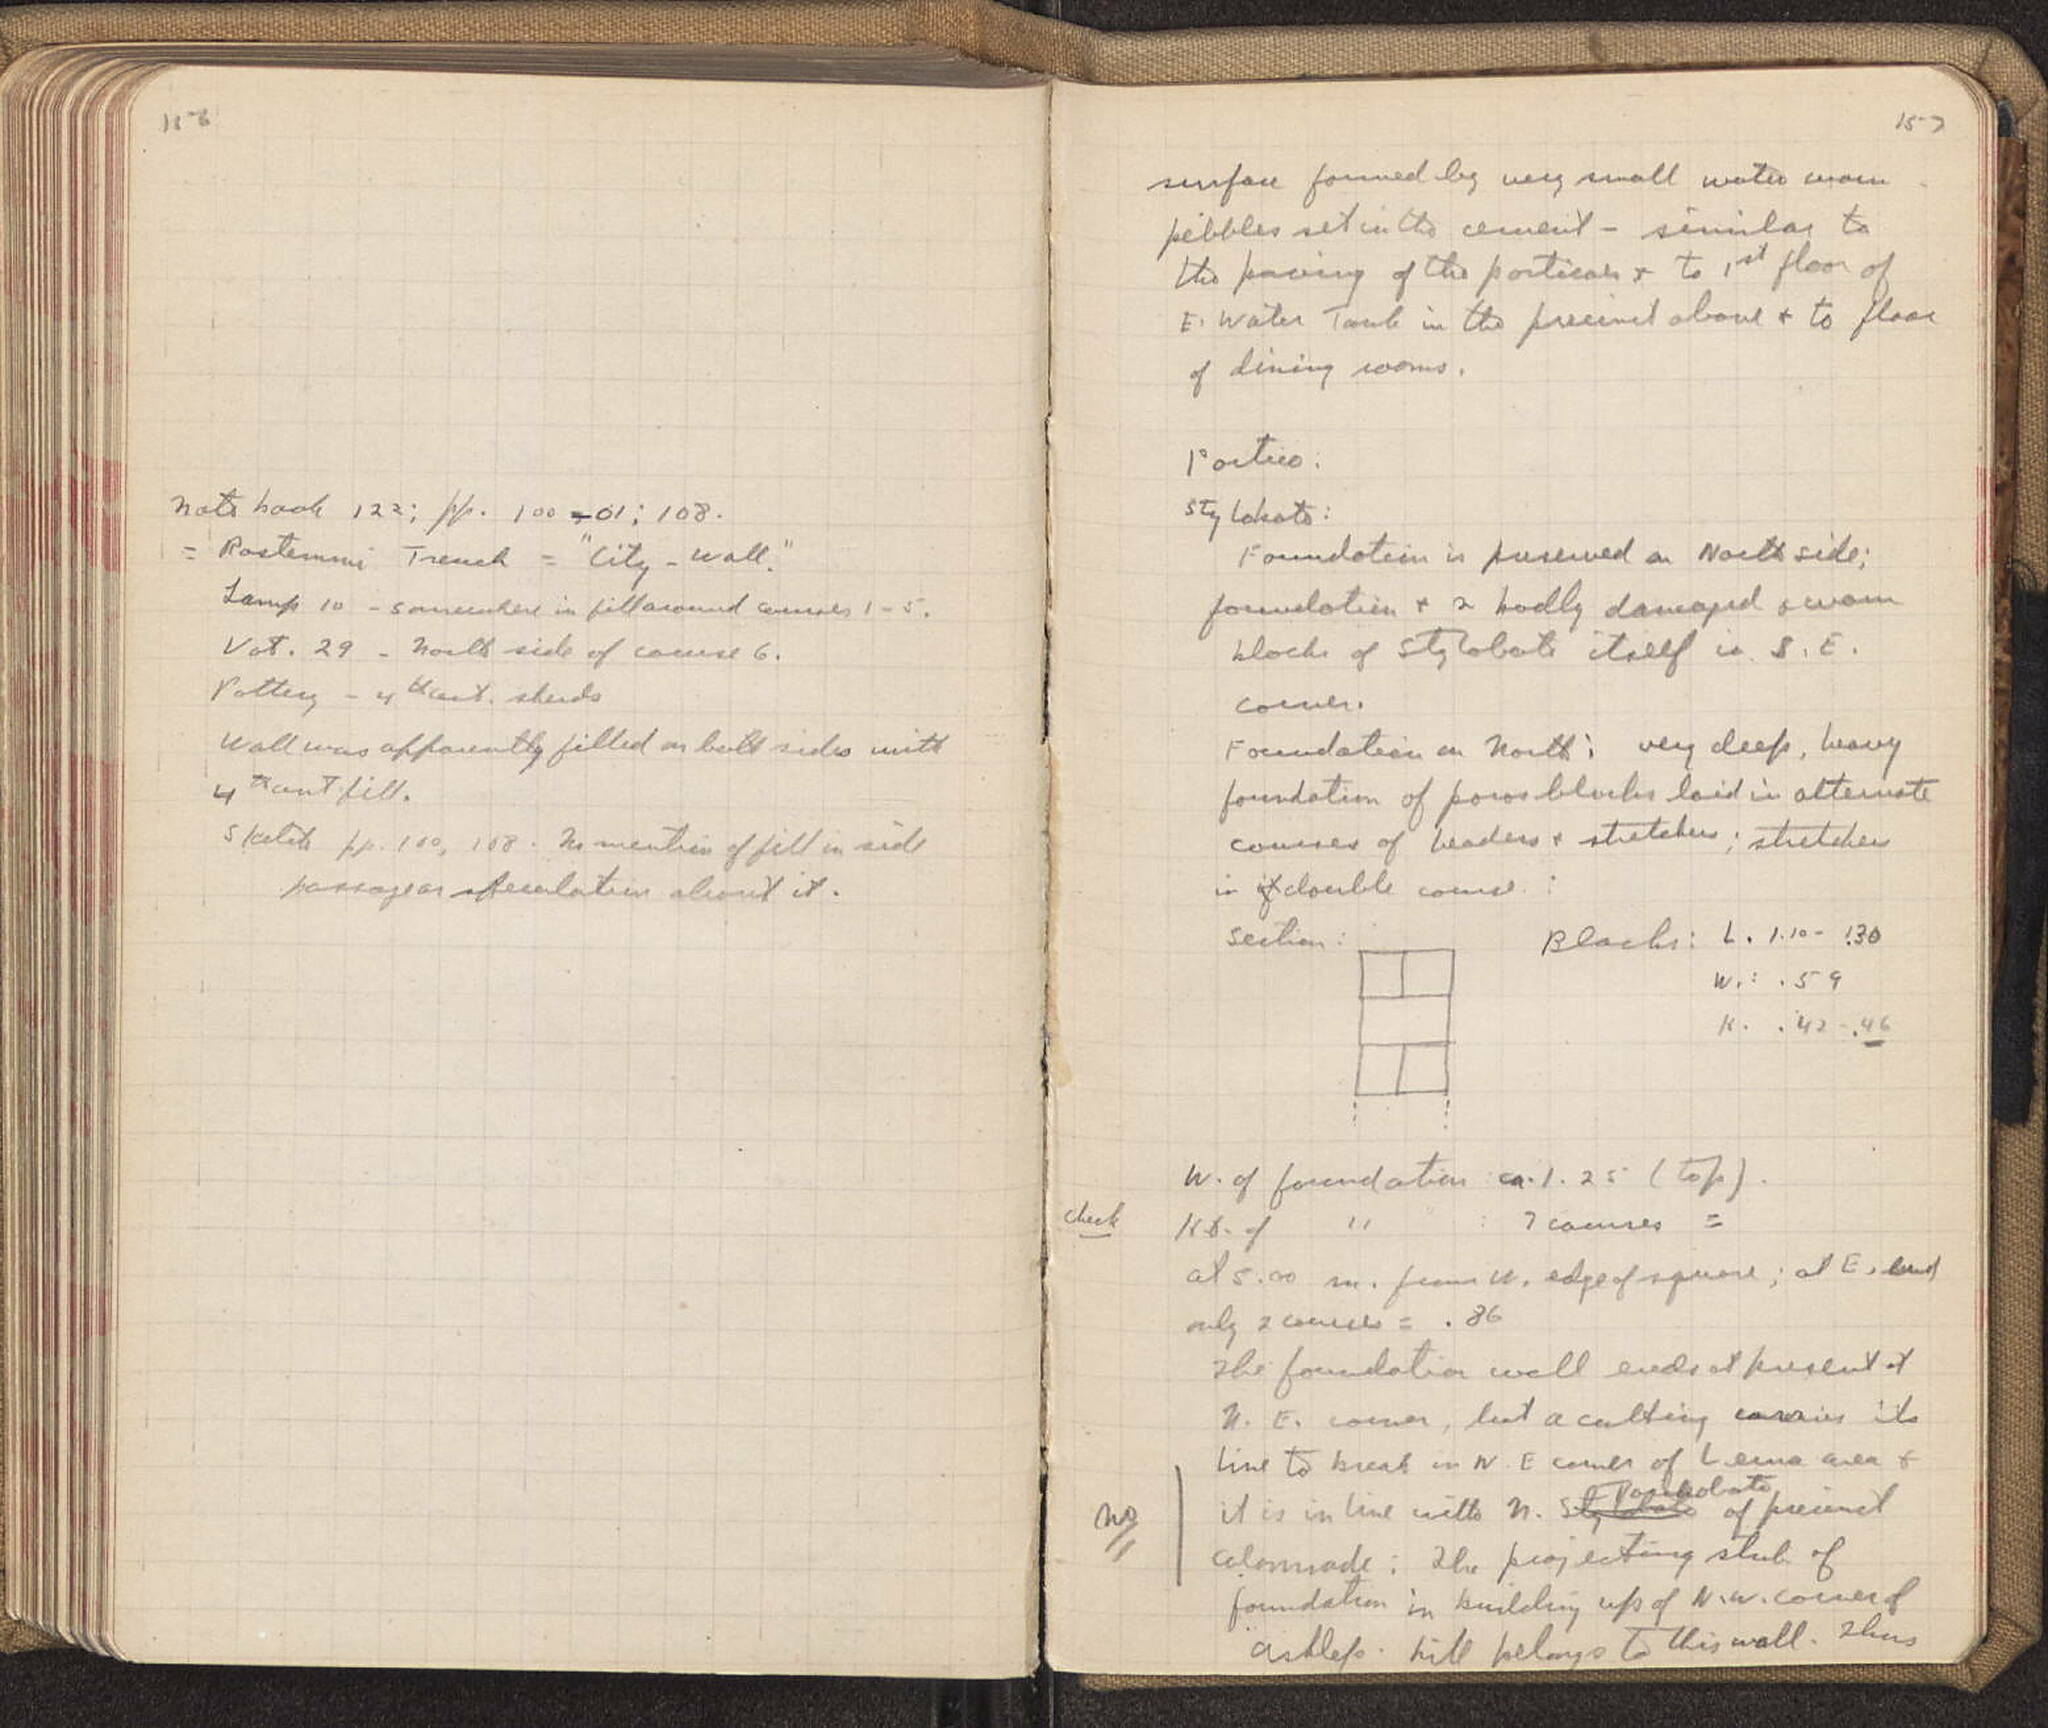 156
Note book 122; pp. 100-01; 108.
= Rostemmi Trench = "City-Wall."
Lamp 10 - somewhere in fill around courses 1-5.
Vot. 29 - North side of course 6.
Pottery - 4th cent. sherds
Wall was apparently filled on both sides with
4th cent fill.
Sketch pp. 100, 108. No mention of fill in side
passage or speculation about it.
157
surface formed by very small water worn
pebbles set in the cement - similar to
the paving of the porticoes + to 1st floor of
E. Water Tank in the precinct above + to floor
of dining rooms.
Portico:
Stylobate:
Foundation is preserved on North side;
foundation + 2 badly damaged & worn
blocks of Stylobate itself in S.E.
corner.
Foundation on North: very deep, heavy
foundation of poros blocks laid in alternate
courses of headers + stretchers; stretchers
in double course:
Section:
Blocks: L. 1.10 - 1.30
W.: .59
H. .42-.46
W. of foundation ca. 1.25 (top).
check
H. of " : 7 courses =
at 5.00 m. from W. edge of square; at E. end
only 2 courses = .86
The foundation wall ends at present at
N. E. corner, but a cutting carries its
line to break in N.E corner of Lerna area +
no
it is in line with N. Stylobate of precinct
colonnade: The projecting stub of
foundation in building up of N.W. corner of
Asklep. hill belongs to this wall. Thus